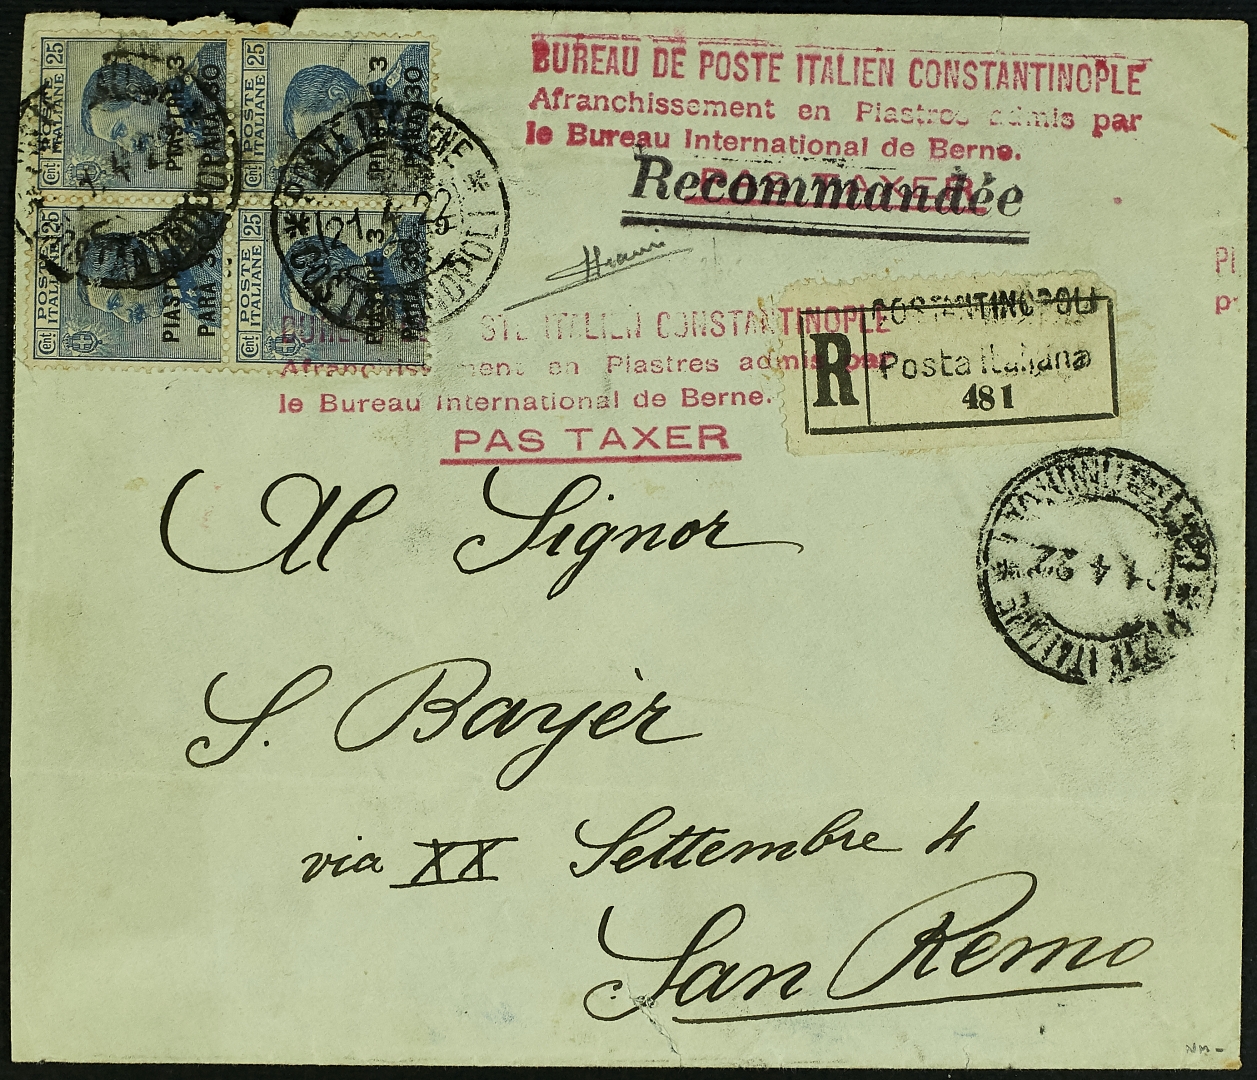 25 POSTE ITALIANE Cent
PIASTRE 3
PARA 30
25 POSTE ITALIANE Cent
PIASTRE 3
PARA 30
25 POSTE ITALIANE Cent
PIASTRE 3
PARA 30
25 POSTE ITALIANE Cent
PIASTRE 3
PARA 30
POSTE ITALIANE
21.4.22
COSTANTINOPOLI
BUREAU DE POSTE ITALIEN CONSTANTINOPLE
Afranchissement en Piastres admis par
le Bureau International de Berne.
PAS TAXER
Recommandée
BUREAU DE POSTE ITALIEN CONSTANTINOPLE
Afranchissement en Piastres admis par
le Bureau International de Berne.
PAS TAXER
R
COSTANTINOPOLI
Posta Italiana
481
4 22
Al Signor
S. Bayèr
via XX Settembre 4
San Remo